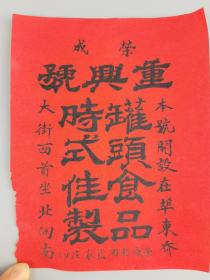 榮成
重興號
本號開設在埠東齊
罐頭食品
時式佳製
大街西首坐北向南